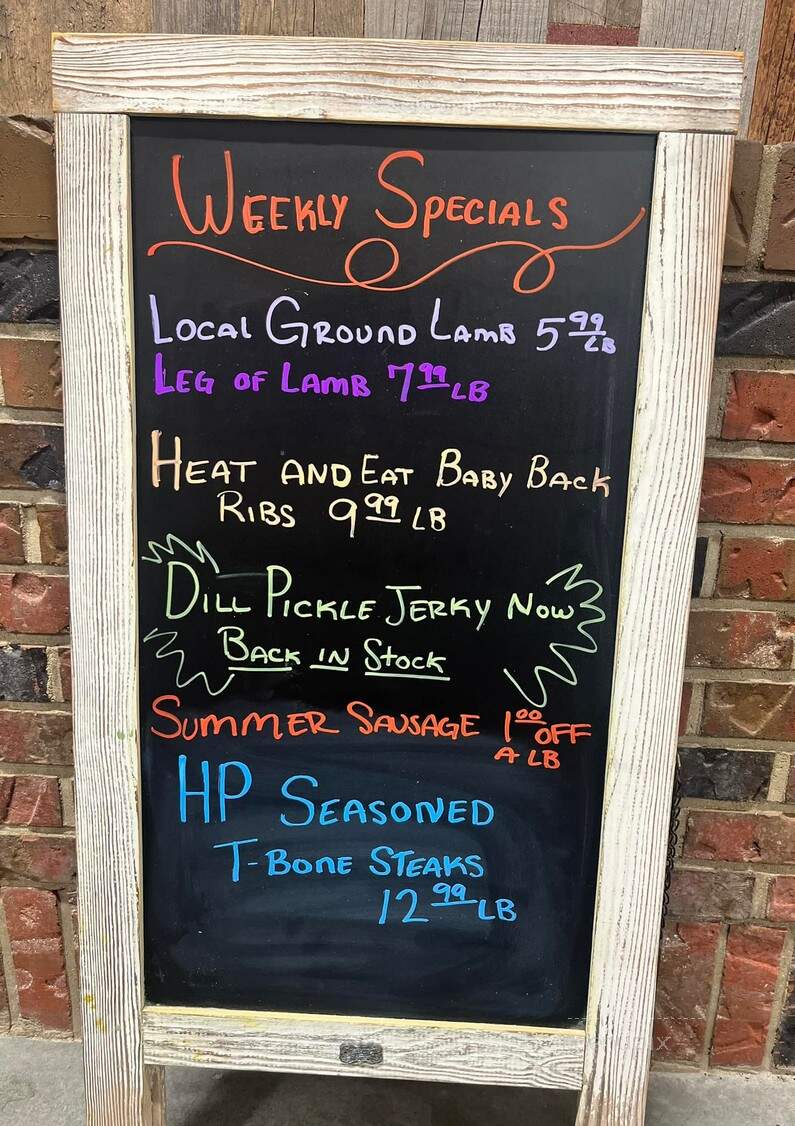 WEEKLY SPECIALS
LOCAL GROUND LAMB 5 99 LB
LEG OF LAMB 7 99 LB
HEAT AND EAT BABY BACK
RIBS 9 99 LB
DILL PICKLE JERKY NOW
BACK IN STOCK
SUMMER SAUSAGE 1 00 OFF
A LB
HP SEASONED
T-BONE STEAKS
12 99 LB